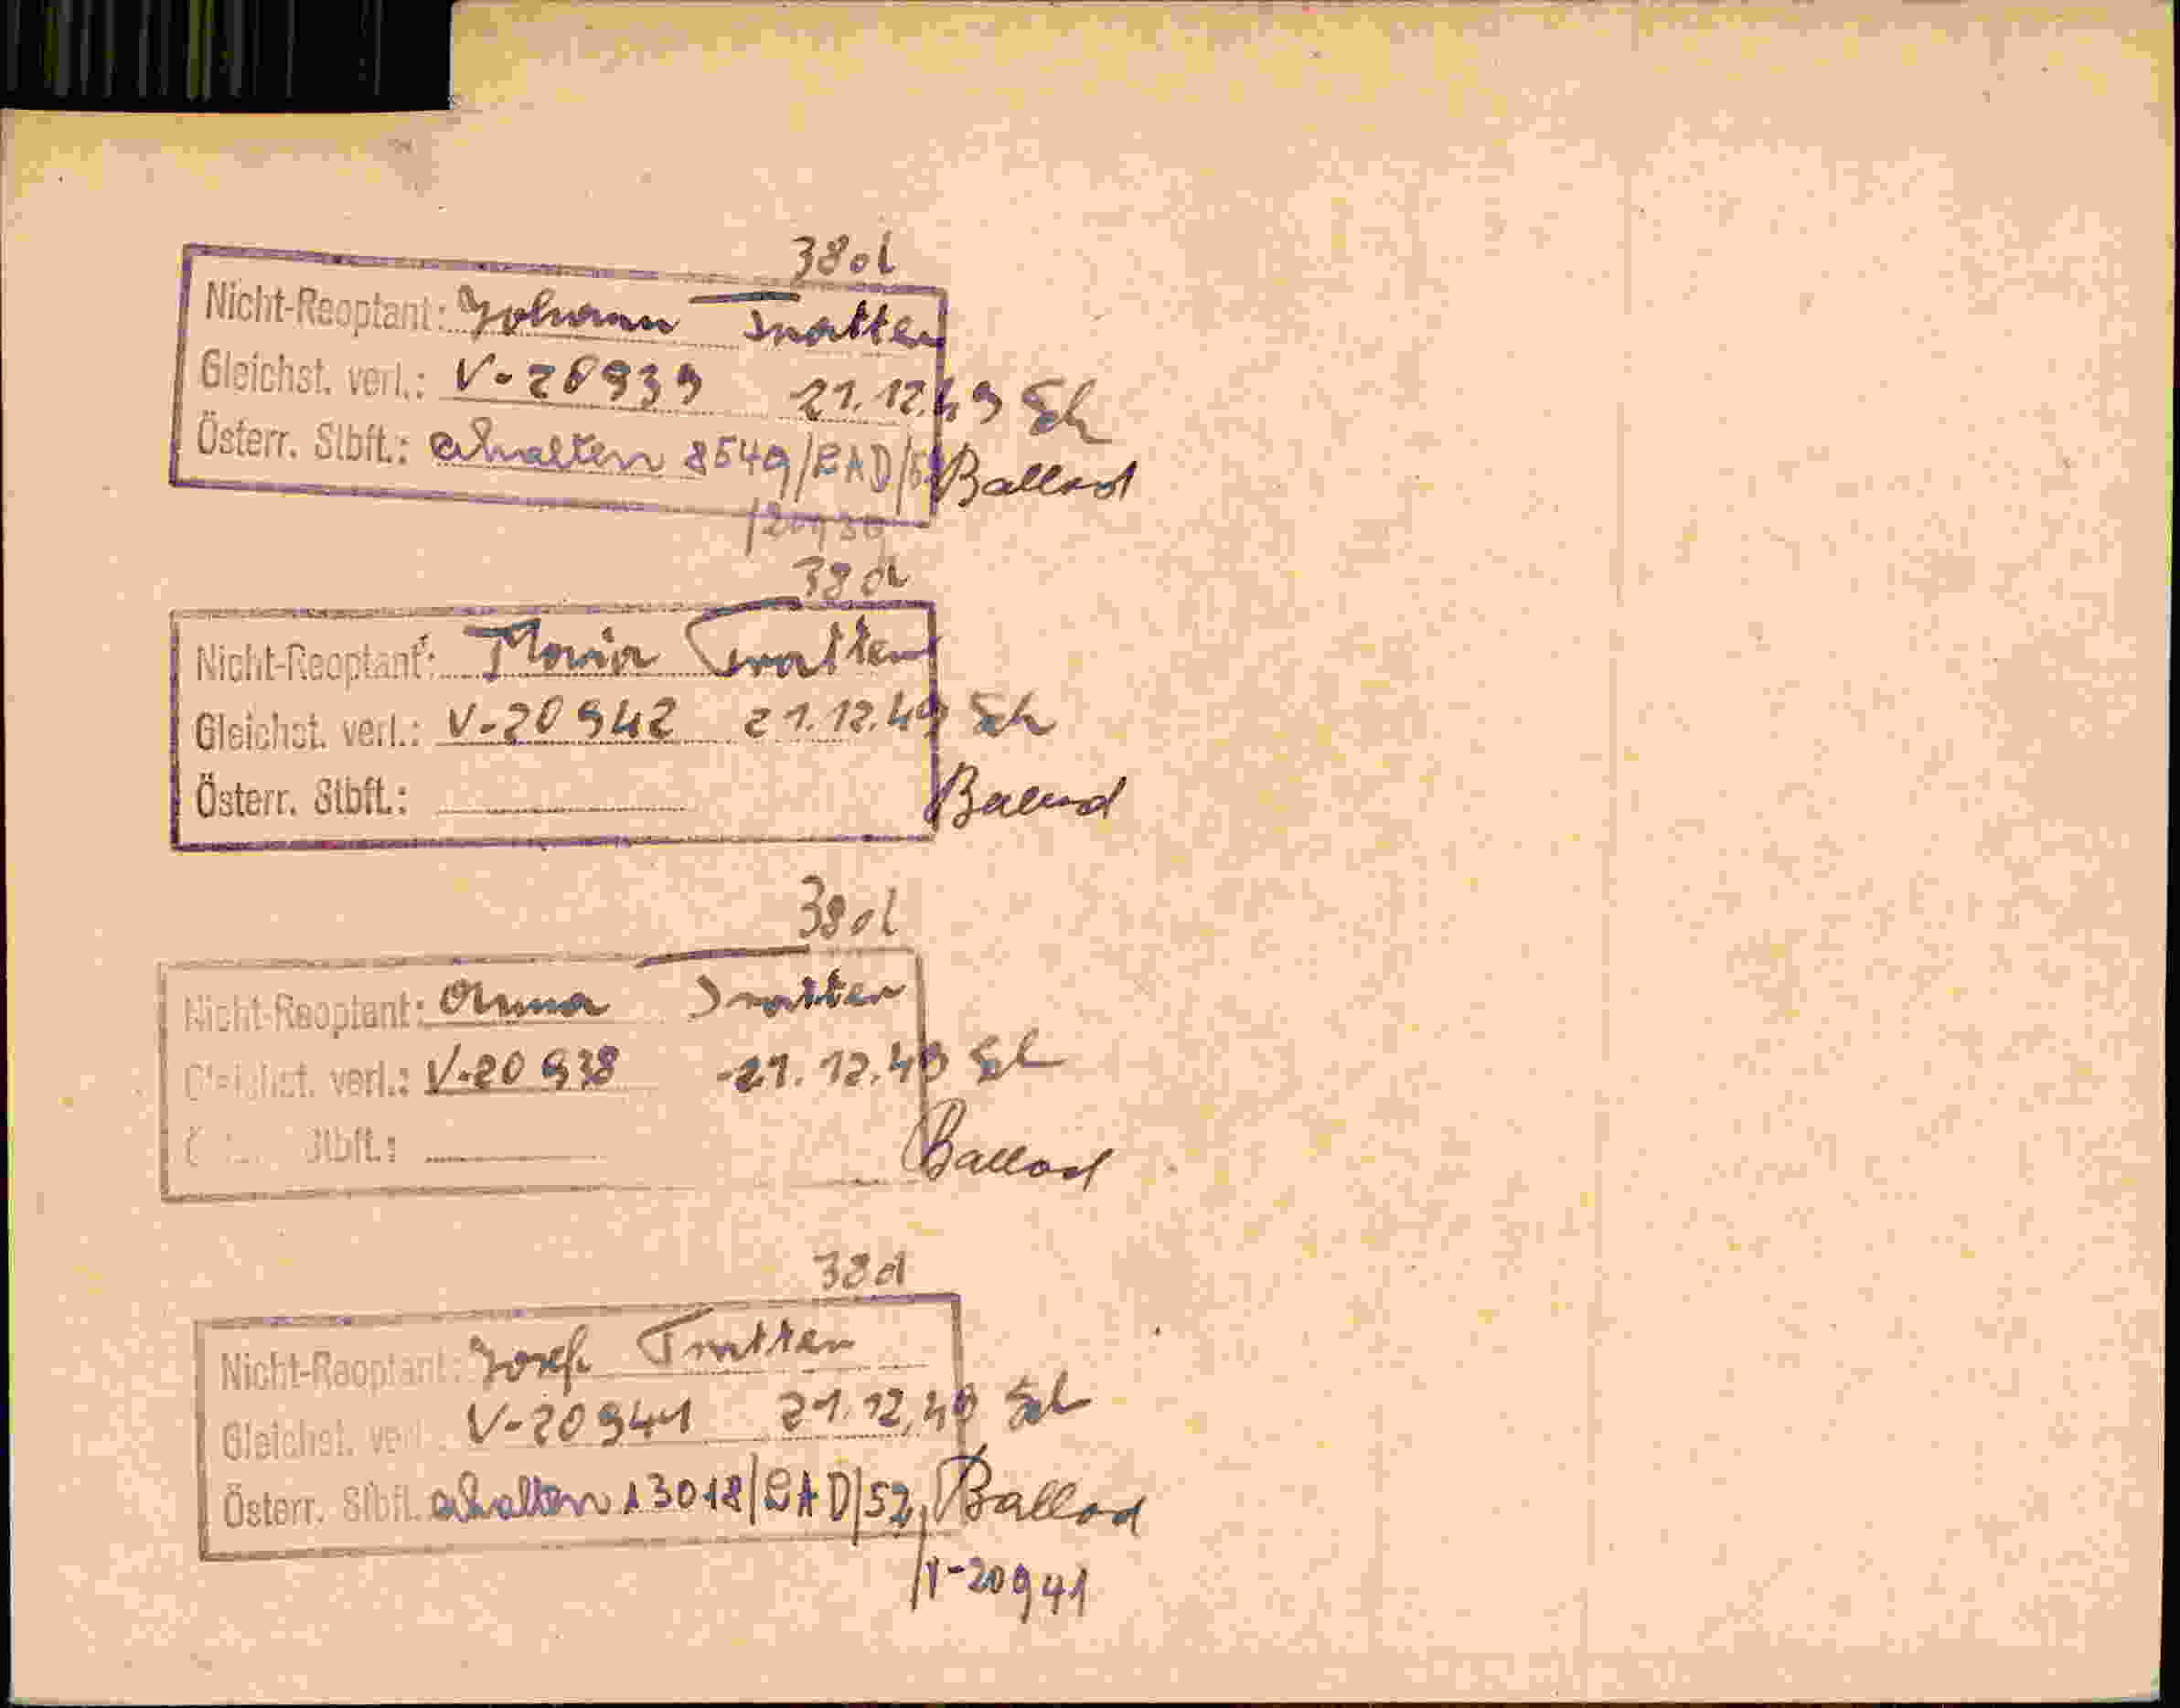 38d
Nicht-Reoptant: Johann Tratter
Gleichst. verl.: V-20939 21.12.49 Sch
Österr. Stbft.: erhalten 8549/LAD/5 Ballod
/20939
38d
Nicht-Reoptant: Maria Tratter
Gleichst. verl.: V-20942 21.12.49 Sch
Österr. Stbft.: Ballod
38d
Nicht-Reoptant: Anna Tratter
Gleichst. verl.: V-20938 21.12.49 Sch
Stbft.: Ballod
38d
Nicht-Reoptant: Josef Tratter
Gleichst. verl. V-20941 21.12.49 Sch
Österr. Stbft. erhalten 13018/LAD/52, Ballod
/V-20941